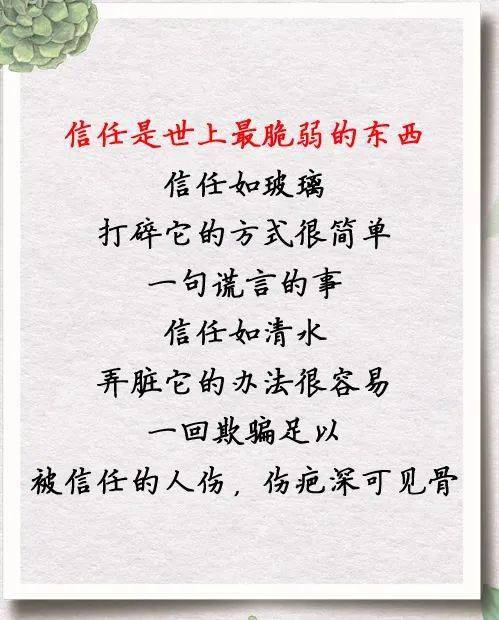 信任是世上最脆弱的东西
信任如玻璃
打碎它的方式很简单
一句谎言的事
信任如清水
弄脏它的办法很容易
一回欺骗足以
被信任的人伤，伤疤深可见骨